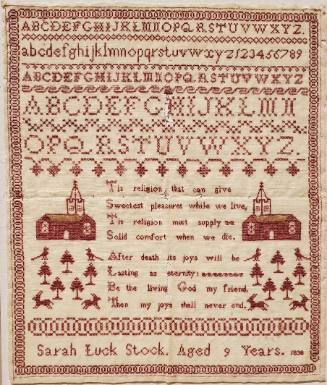 ABCDEFGHIJKLMNOPQRSTUVWXYZ.
abcdefghijklmnopqrstuvwxyz123456789
ABCDEFGHIJKLMNOPQRSTUVWXYZ
ABCDEFGHIJKLMN
OPQRSTUVWXYZ.
Tis religion that can give
Sweetest pleasures while we live,
Tis religion must supply
Solid comfort when we die.
After death its joys will be
Lasting as eternity;
Be the living God my friend,
Then my joys shall never end.
Sarah Luck Stock. Aged 9 Years. 1838